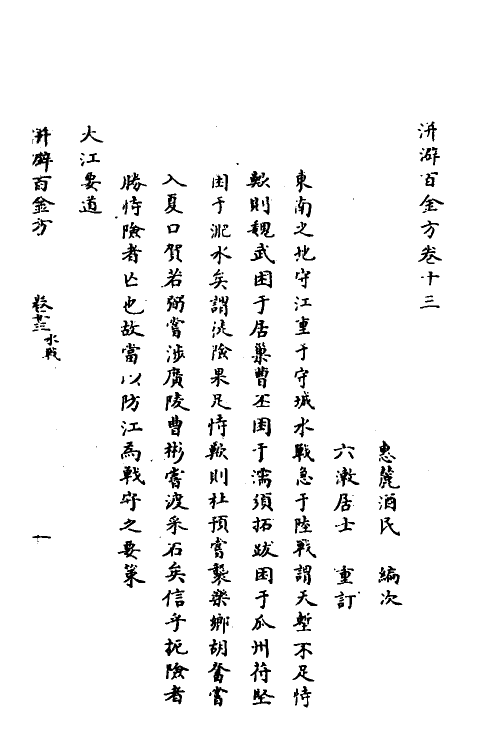 洴澼百金方卷十三
惠麓酒民 編次
六漱居士 重訂
東南之地守江重于守城水戰急于陸戰謂天塹不足恃
歟則魏武困于居巢曹丕困于濡須拓跋困于瓜州苻堅
困于淝水矣謂淡險果足恃歟則杜預嘗襲樂鄉胡奮嘗
入夏口賀若弼嘗涉廣陵曹彬嘗渡采石矣信乎扼險者
勝恃險者亡也故當以防江為戰守之要策
大江要道
洴澼百金方 卷十三 水戰 一